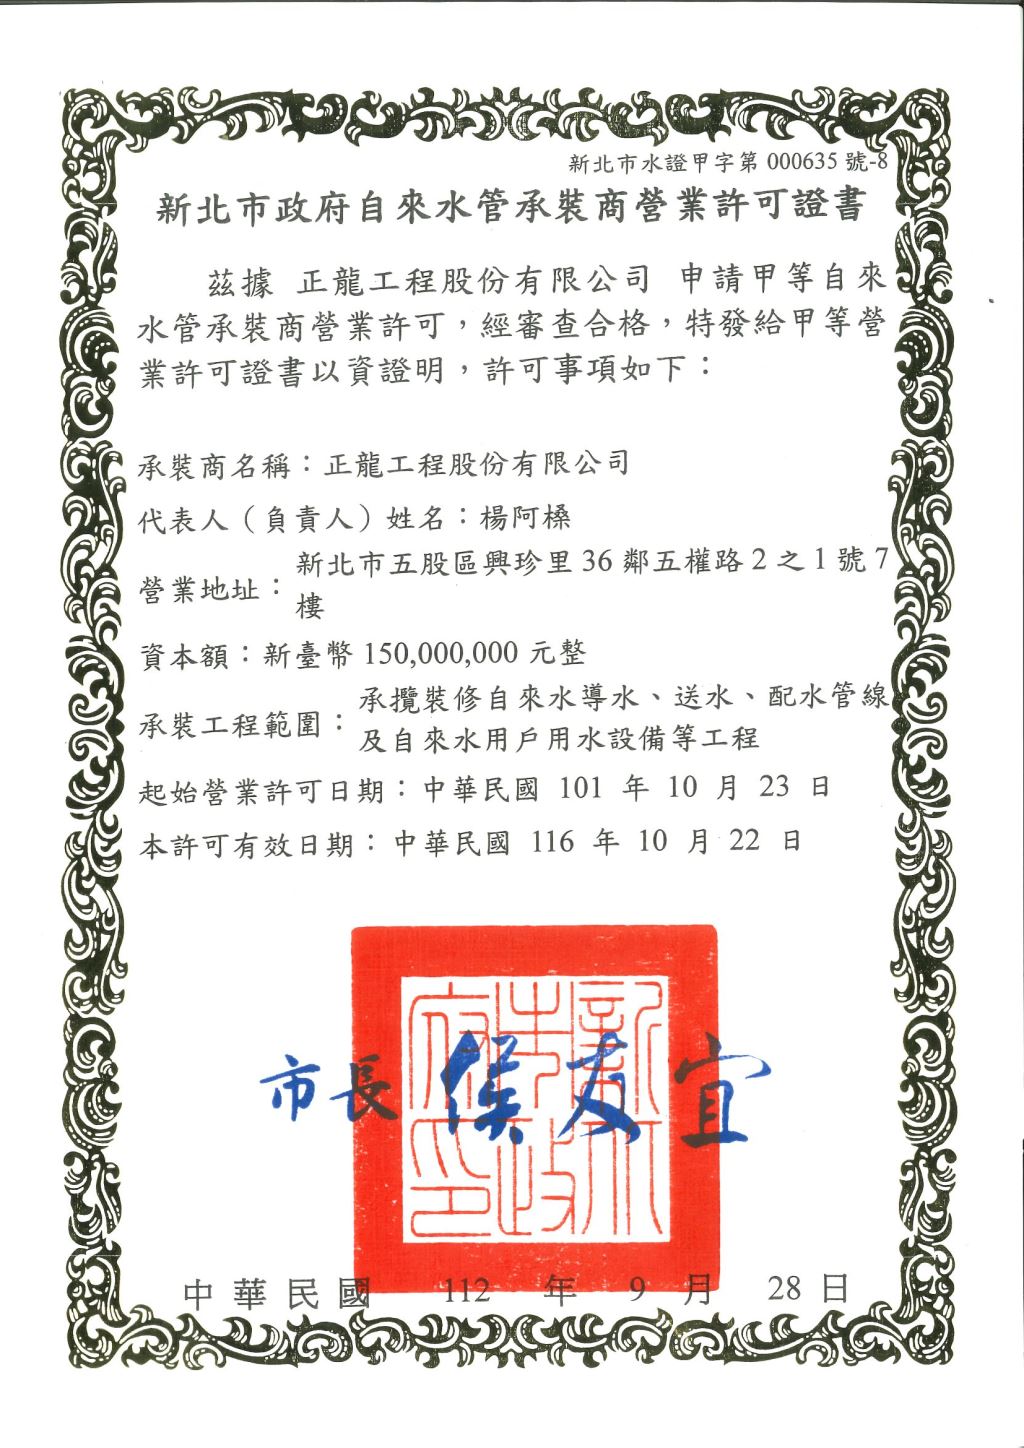 新北市水證甲字第 000635 號-8
新北市政府自來水管承裝商營業許可證書
茲據 正龍工程股份有限公司 申請甲等自來
水管承裝商營業許可，經審查合格，特發給甲等營
業許可證書以資證明，許可事項如下：
承裝商名稱：正龍工程股份有限公司
代表人（負責人）姓名：楊阿橾
營業地址：新北市五股區興珍里 36 鄰五權路 2 之 1 號 7
樓
資本額：新臺幣 150,000,000 元整
承裝工程範圍：承攬裝修自來水導水、送水、配水管線
及自來水用戶用水設備等工程
起始營業許可日期：中華民國 101 年 10 月 23 日
本許可有效日期：中華民國 116 年 10 月 22 日
新北市政府印
市長 侯友宜
中華民國 112 年 9 月 28 日